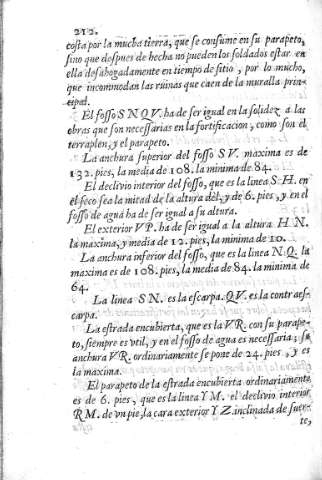 212.
costa por la mucha tierra, que se consume en su parapeto,
sino que despues de hecha no pueden los soldados estar en
ella desahogadamente en tiempo de sitio, por lo mucho,
que incommodan las rüinas que caen de la muralla prin-
cipal.
El fosso S N Q V. ha de ser igual en la solidez a las
obras que son necessarias en la fortificacion, como son el
terraplen, y el parapeto.
La anchura superior del fosso S V. maxima es de
132. pies, la media de 108. la minima de 84.
El declivio interior del fosso, que es la linea S H. en
el seco sea la mitad de la altura del, y de 6. pies, y en el
fosso de agua ha de ser igual a su altura.
El exterior V P. ha de ser igual a la altura H N.
la maxima, y media de 12. pies, la minima de 10.
La anchura inferior del fosso, que es la linea N Q. la
maxima es de 108. pies, la media de 84. la minima de
64.
La linea S N. es la escarpa. Q V. es la contraes-
carpa.
La estrada encubierta, que es la V R. con su parape-
to, siempre es vtil, y en el fosso de agua es necessaria; su
anchura V R. ordinariamente se pone de 24. pies, y es
la maxima.
El parapeto de la estrada encubierta ordinariamente
es de 6. pies, que es la linea Y M. el declivio interior
R M. de vn pie, la cara exterior Y Z. inclinada de suer-
te,